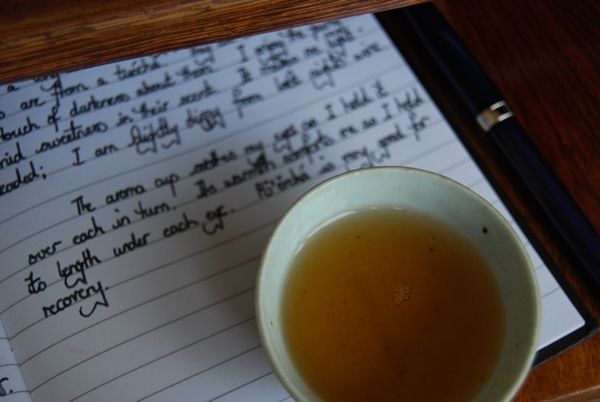 s are from a tuocha. I enjoy the
touch of darkness about them. It makes me light-
mid sweetness in their scent.
headed; I am slightly dizzy from last night's wine.
The aroma cup soothes my eyes as I hold it
over each in turn. Its warmth comforts me as I hold
its length under each eye. Pu'erh is very good for
recovery.